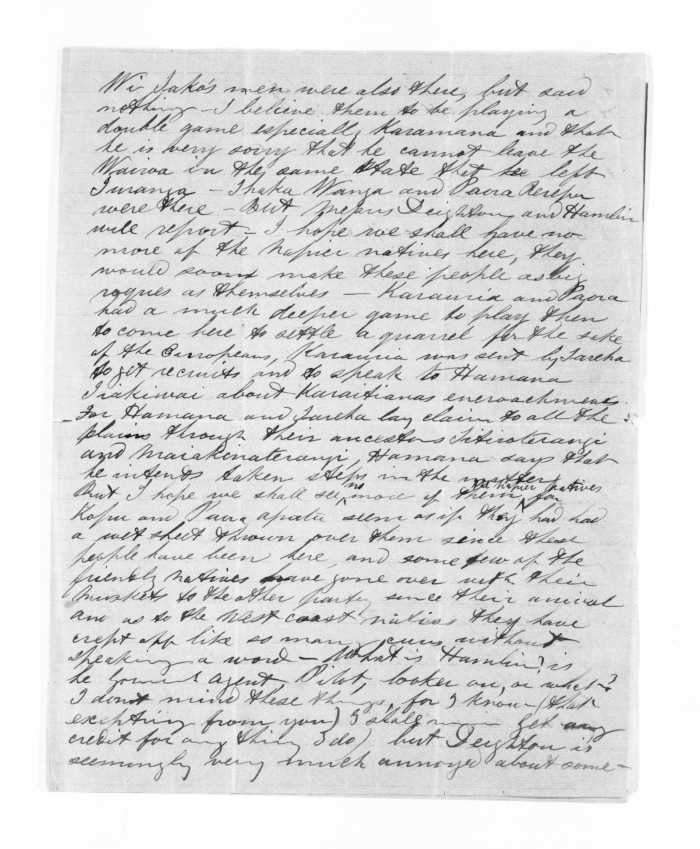 Wi Tako's men were also there, but said
nothing - I believe them to be playing a
double game especially Karamana and that
he is very sorry that he cannot leave the
Wairoa in the same state that he left
Turanga - Ihaka Wanga and Paora Rerepu
were there - But Means Deighton and Hamlin
will report - I hope we shall have no
more of the Napier natives here, they
would soon make these people as big
rogues as themselves - Karauria and Paora
had a much deeper game to play then
to come here to settle a quarrel for the sake
of the Europeans, Karauria was sent by Tareha
to get recruits and to speak to Hamana
Tiakiwai about Karaitianas encroachments.
For Hamana and Tareha lay claim to all the
plains through their ancestors
and Hamana says that
he intends taken steps in the matter
But I hope we shall see no more of them the Napier natives for
Kopu and Paora apatu seem as if they had had
a wet sheet thrown over them since these
people have been here, and some few of the
friendly natives have gone over with their
muskets to the other party since their arrival
and as to the West coast natives they have
crept off like so many curs without
speaking a word - What is Hamlin? is
he Agent Pilot, looker on, or what?
I dont mind these things, for I know (that
excepting from you) I shall never get any
credit for any thing I do) but Deighton is
seemingly very much annoyed about some-